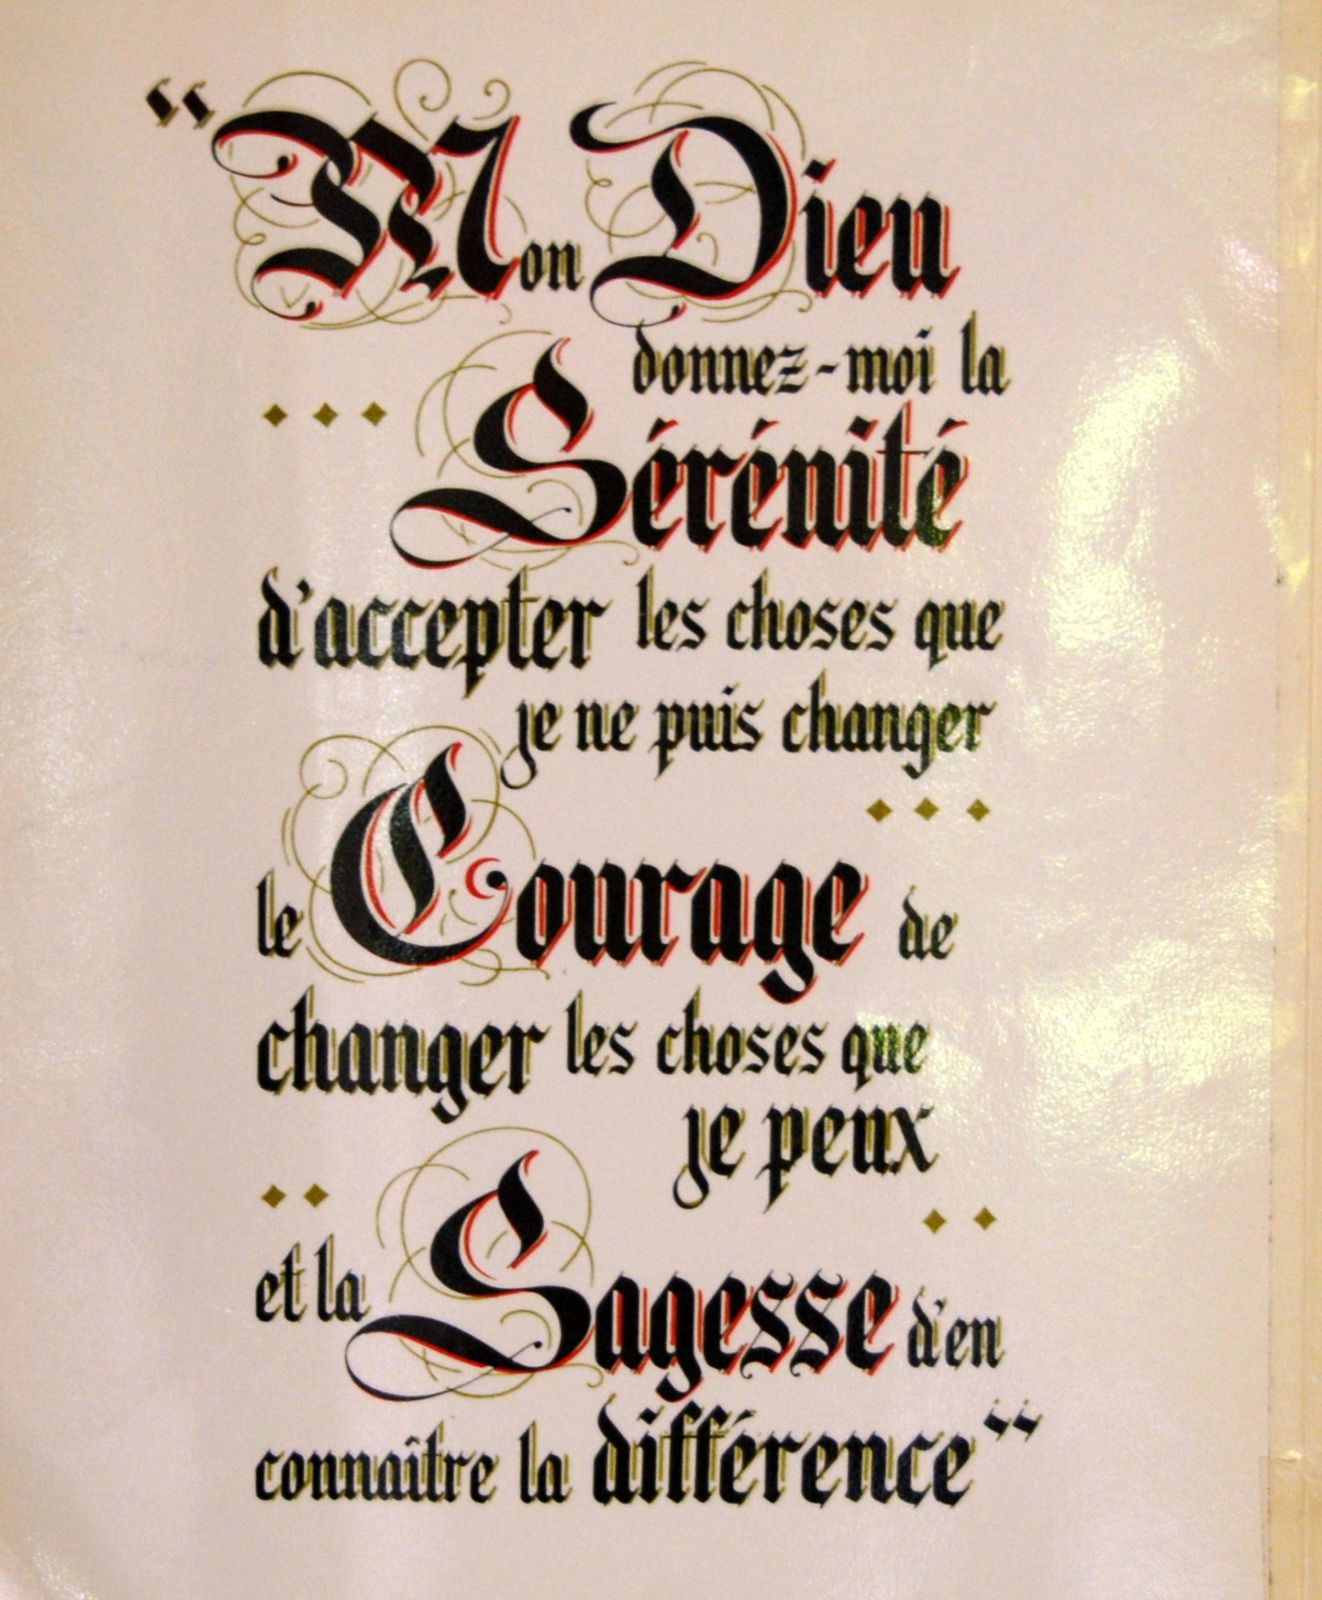 “Mon Dieu
donnez-moi la
Sérénité
d'accepter les choses que
je ne puis changer
le Courage de
changer les choses que
je peux
et la Sagesse d'en
connaître la différence“